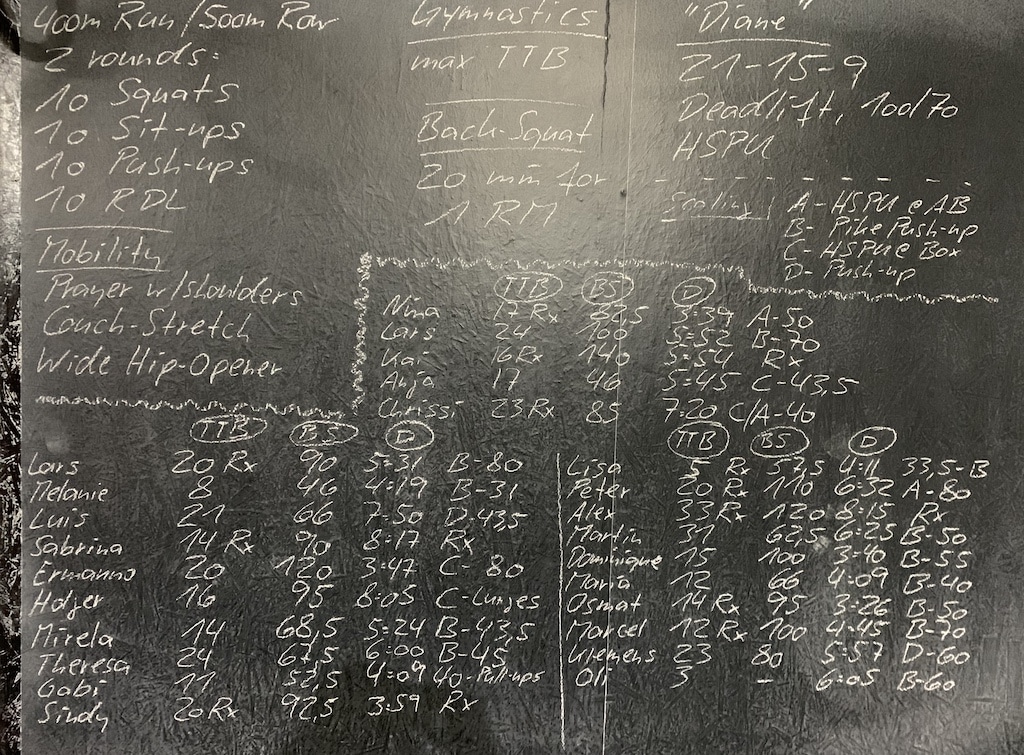 400m Run/500m Row
2 rounds:
10 Squats
10 Sit-ups
10 Push-ups
10 RDL
Mobility
Prayer w/shoulders
Couch-Stretch
Wide Hip-Opener
Gymnastics
max TTB
Back-Squat
20 min for
1 RM
"Diane"
21-15-9
Deadlift, 100/70
HSPU
Scaling A-HSPU e AB
B-Pike Push-up
C-HSPU e Box
D-Push-up
TTB BS D
Nina 17 Rx 62,5 3:39 A-50
Lars 24 100 5:52 B-70
Kai 16Rx 140 5:54 Rx
Anja 17 46 5:45 C-43,5
Chrissi 23Rx 85 7:20 C/A-40
TTB BS D
Lars 20 Rx 90 5:31 B-80
Melanie 8 46 4:19 B-31
Luis 21 66 7:50 D-43,5
Sabrina 14 Rx 90 8:17 Rx
Ermanno 20 120 3:47 C-80
Holger 16 95 8:05 C-Lunges
Mirela 14 68,5 5:24 B-43,5
Theresa 24 67,5 6:00 B-45
Gabi 11 52,5 4:09 40-Pull-ups
Sindy 20Rx 92,5 3:59 Rx
TTB BS D
Lisa 5 Rx 57,5 4:11 33,5-B
Peter 20 Rx 110 6:32 A-80
Alex 33Rx 120 8:15 Rx
Martin 31 62,5 6:25 B-50
Dominique 15 100 3:40 B-55
Maria 12 66 4:09 B-40
Osmat 14Rx 95 3:26 B-50
Marcel 12 Rx 100 4:45 B-70
Klemens 23 80 5:57 D-60
Oli 3 - 6:05 B-60